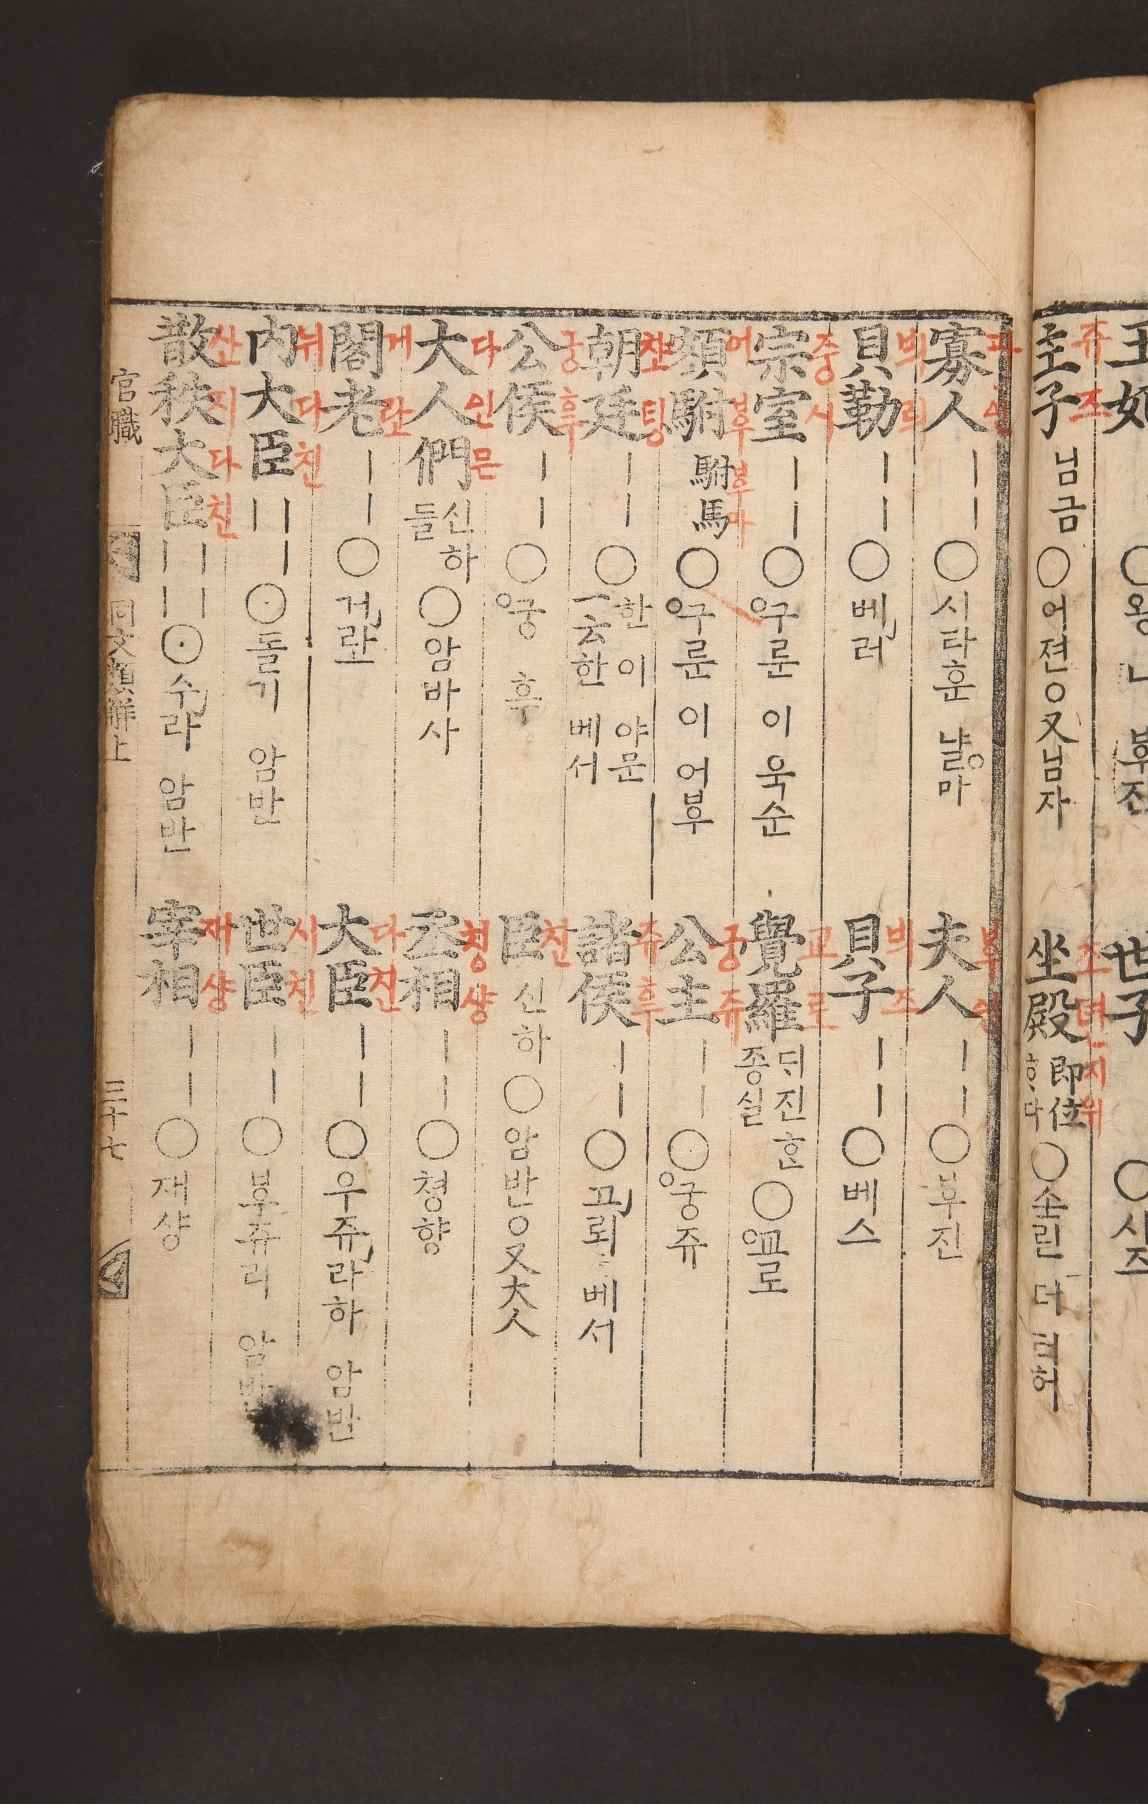 王妃
世子
王子 님금 ○어젼○又님자
쥬즈
坐殿 即位ᄒᆞ다 ○소린 더 터허
寡人 ㅣㅣ ○시라훈 냘마
夫人 ㅣㅣ ○부진
貝勒 ㅣㅣ ○베러
븨리
貝子 ㅣㅣ ○베스
븨즈
宗室 ㅣㅣ ○구룬 이 욱순
중시
覺羅 듸진ᄒᆞᆫ 종실 ○교로
교로
額駙 駙馬 ○구룬 이 어부
公主 ㅣㅣ ○궁쥬
궁쥬
朝廷 ㅣㅣ ○한 이 야문 一云한 베서
諸侯 ㅣㅣ ○고뢰 베서
쥬후
公侯 ㅣㅣ ○궁 후
궁후
臣 신하 ○암반○又大人
친
大人們 신하들 ○암바사
다인믄
丞相 ㅣㅣ ○쳥향
쳥샹
閣老 ㅣㅣ ○거란
大臣 ㅣㅣ ○우쥬라하 암반
다친
內大臣 ㅣㅣㅣ ○돌기 암반
뉘다친
世臣 ㅣㅣ ○부쥬리
시친
散秩大臣 ㅣㅣㅣㅣ ○수라 암반
산지다친
宰相 ㅣㅣ ○재샹
재샹
官職
同文類解上
三十七